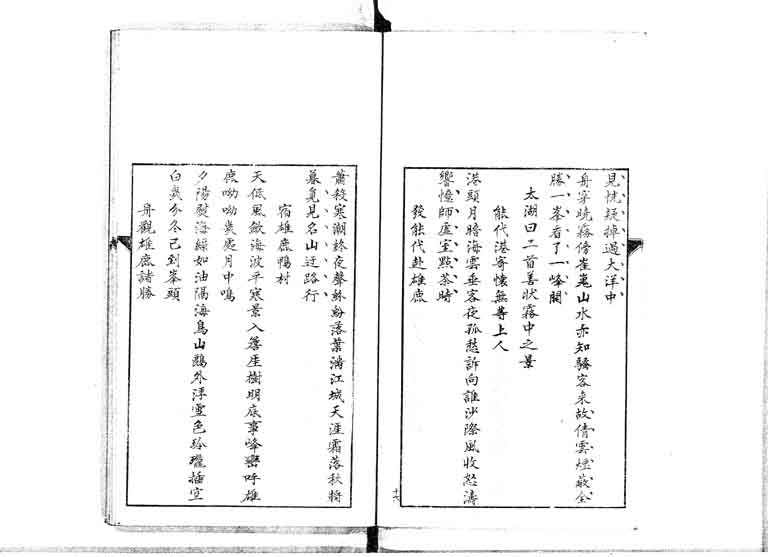 見恍疑掉過大洋中
舟穿曉霧傍崔嵬山水亦知騷客来故倩雲煙蔽全
勝一峯看了一峰開
太湖曰二首善狀霧中之景
能代港寄懷無等上人
港頭月暗海雲垂客夜孤愁訴向誰沙際風收怒濤
響憶師虛室點茶時
發能代赴雄鹿
蕭殺寒潮終夜聲紛落葉滿江城天涯霜落秋將
暮覓見名山迂路行
宿雄鹿鴨村
天低風斂海波平寒景入簷座樹明底事峰巒呼雄
鹿呦呦幾處月中鳴
夕陽熨海綠如油隔海鳥山鷁外浮雪色玲瓏插空
白幾分冬已到峯頭
舟觀雄鹿諸勝
十六